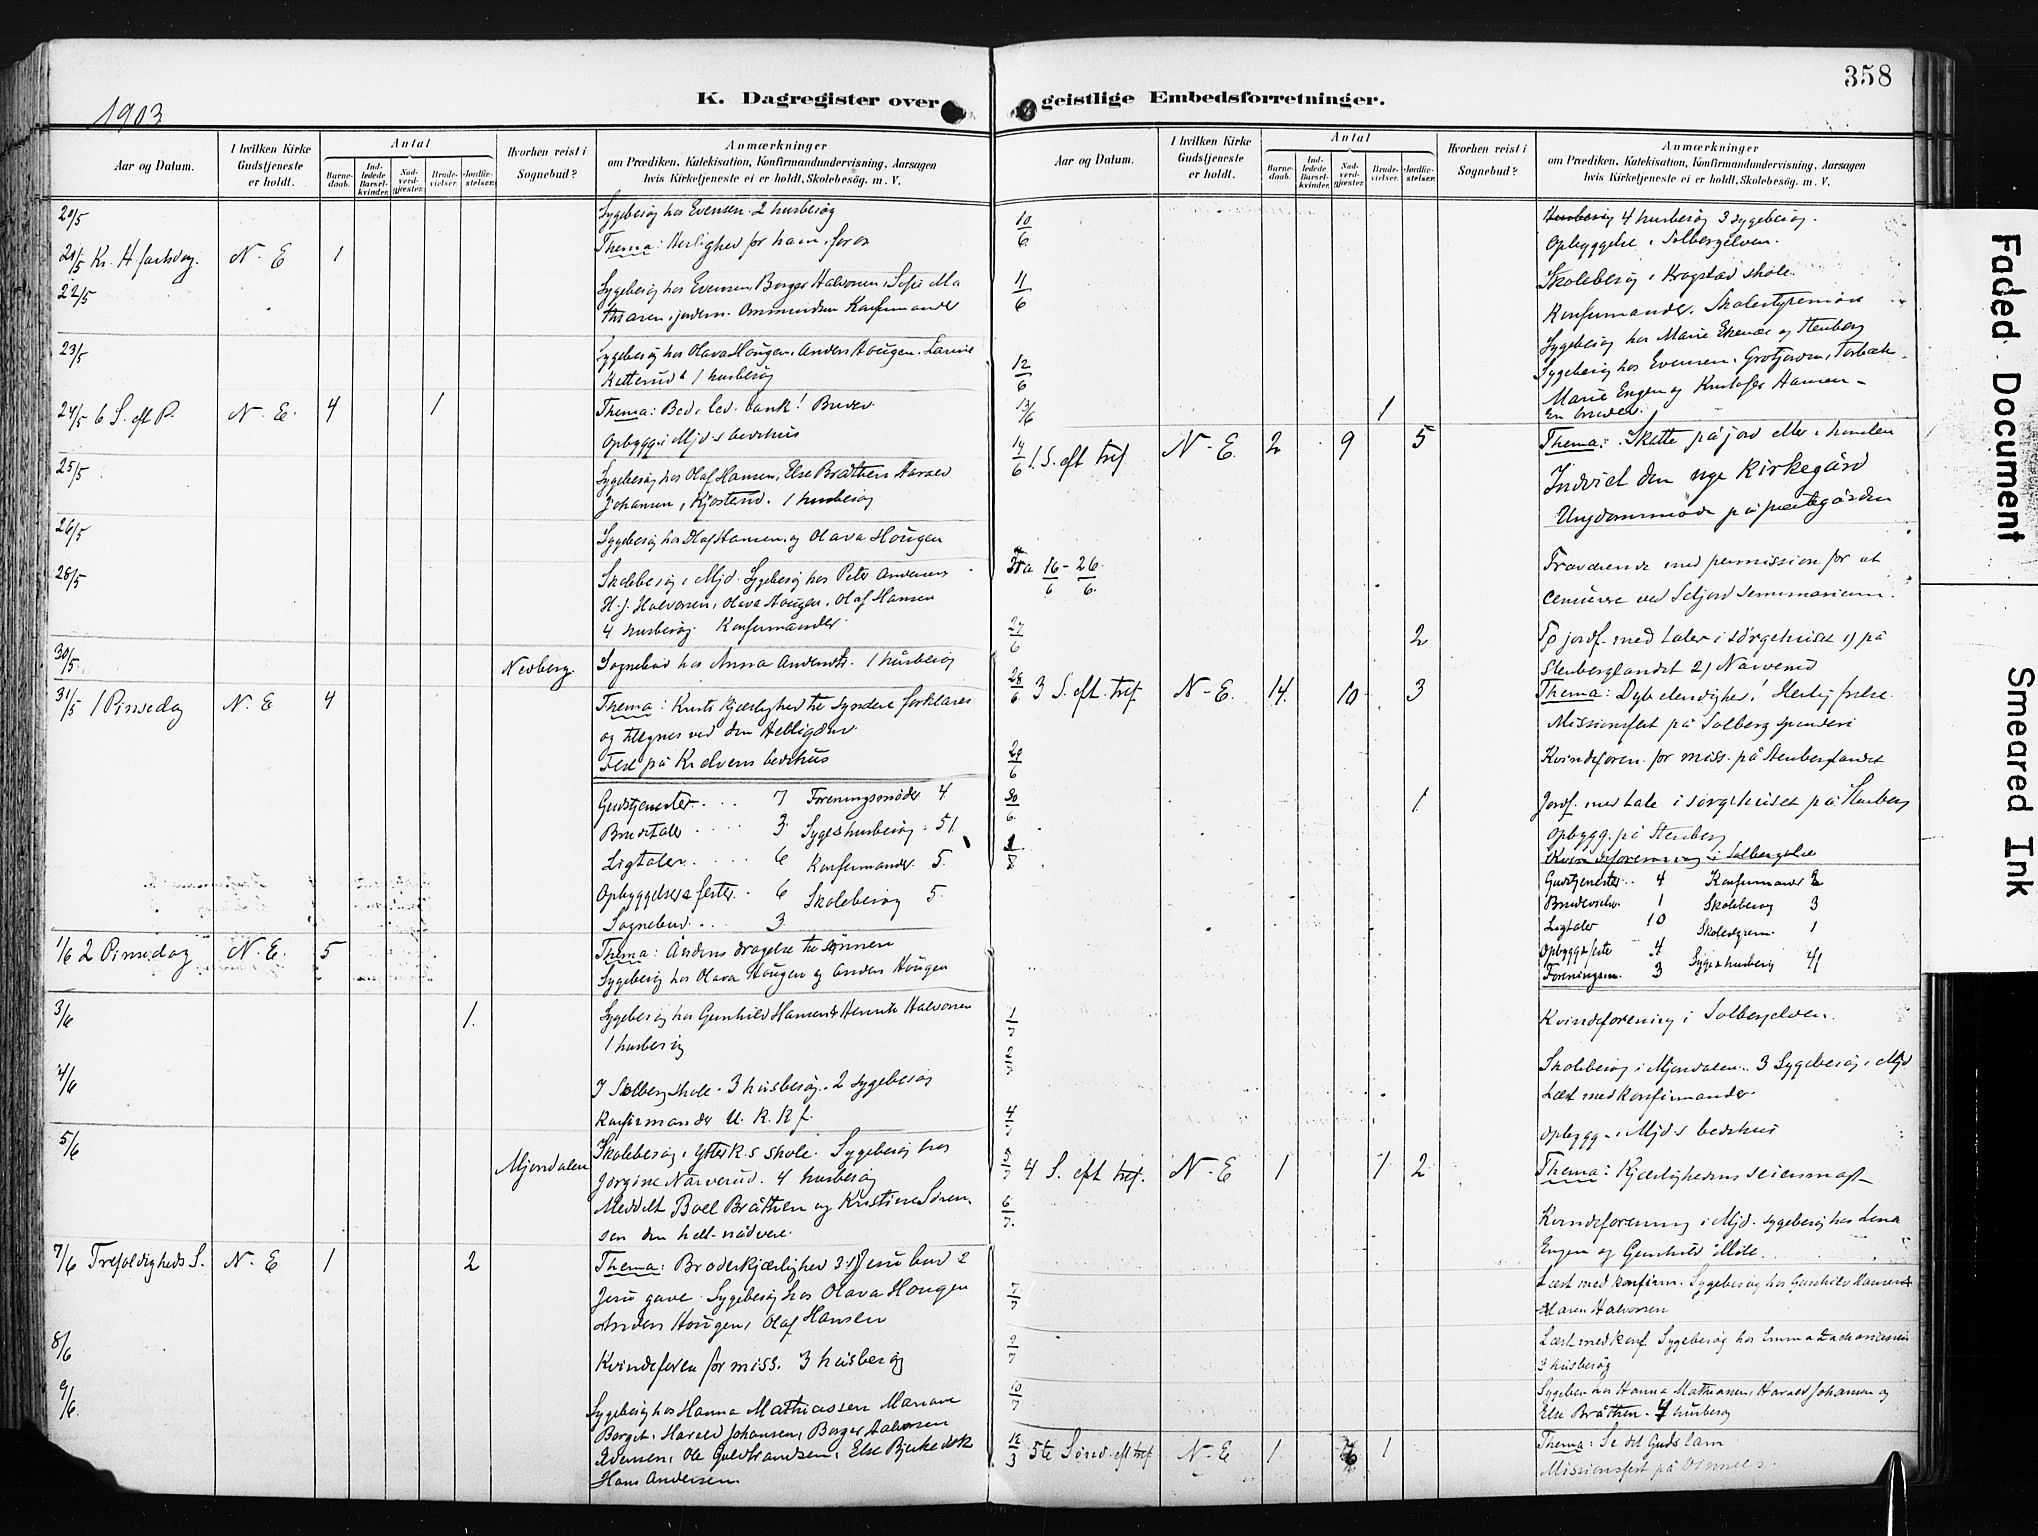 358
K. Dagregister over geistlige Embedsforretninger.
1903
Aar og Datum.
I hvilken Kirke Gudstjeneste er holdt.
Antal
Barnedaab.
Indledede Barselkvinder.
Nadverdgjester.
Brudevielser.
Jordfæstelser.
Hvorhen reist i Sognebud?
Anmærkninger
om Prædiken, Katekisation, Konfirmandundervisning, Aarsagen
hvis Kirketjeneste ei er holdt, Skolebesøg m. V.
20/5 Sygebesøg hos Evensen. 2 husbesøg
21/5 Kr. H. fartsdag. N. E 1 Thema: Herlighed for ham, for os
22/5 Sygebesøg hos Evensen, Borger Halvorsen, Sofie Ma
thisen, jordm. Ommundsen Konfirmander
23/5 Sygebesøg hos Olava Hougen, Anders Hougen,
Ketterud & 1 husbesøg
24/5 6 S. eft P. N. E. 4 1 Thema: Bed, lev, tænk! Brudev.
Opbygg. i Mjd s bedehus
25/5 Sygebesøg hos Olaf Hansen, Else Bråthen Harald
Johansen, Kjøsterud. 1 husbesøg
26/5 Sygebesøg hos Olaf Hansen, og Olava Hougen
28/5 Skolebesøg i Mjd. Sygebesøg hos Peter Andersen
H. J. Halvorsen, Olava Hougen, Olaf Hansen
4 husbesøg. Konfirmander.
30/5 Nedberg. Sognebud hos Anna Andersdt. 1 husbesøg
31/5 1 Pinsedag N. E 4 Thema: Kristi kjærlighed til syndere forklares
og tilegnes ved den Helligånd
Fest på Kr.elvens bedehus
Gudstjenester 7 Foreningsmøder 4
Brudetaler 3 Syge & husbesøg 51.
Ligtaler 6 Konfirmander 5.
Opbyggelser & fester 6 Skolebesøg 5.
Sognebud 3.
1/6 2 Pinsedag N. E. 5 Thema: Åndens dragelse til sønnen
Sygebesøg hos Olava Hougen og Anders Hougen
3/6 1. Sygebesøg hos Gunhild Hansen & Henrik Halvorsen
1 husbesøg
4/6 I Solberg skole. 3 husbesøg. 2 sygebesøg
Konfirmander U. K. K f.
5/6 Mjøndalen Skolebesøg i Ytter K.s skole. Sygebesøg hos
Jørgine Narverud. 4 husbesøg
Meddelt Boel Bråthen og Kristine Søren
sen den hell. nadvere.
7/6 Trefoldigheds S. N. E 1 2 Thema: Broderkjærlighed Jesu bud 2
Jesu gave. Sygebesøg hos Olava Hougen
Anders Hougen, Olaf Hansen
8/6 Kvindeforen for miss. 3 husbesøg
9/6. Sygebesøg hos Hanna Mathiassen Mariane
Borget, Harald Johansen, Borger Halvorsen
Evensen, Ole Guldbrandsen, Else Bjerkedok
Hans Andersen.
Aar og Datum.
I hvilken Kirke Gudstjeneste er holdt.
Antal
Barnedaab.
Indledede Barselkvinder.
Nadverdgjester.
Brudevielser.
Jordfæstelser.
Hvorhen reist i Sognebud?
Anmærkninger
om Prædiken, Katekisation, Konfirmandundervisning, Aarsagen
hvis Kirketjeneste ei er holdt, Skolebesøg m. V.
10/6 Husbesøg 4 husbesøg 3 sygebesøg.
Opbyggelse i Solbergelven.
11/6 Skolebesøg i Krogstad skole.
Konfirmander. Skolestyremøde
Sygebesøg hos Marie Ekenæs og Stenberg
12/6 Sygebesøg hos Evensen, Grotjorden, Torbæk
Marie Engen og Kristoffer Hansen
13/6 1 En brudev.
14/6 1. S. eft tref N - E. 2 9 5 Thema: Skatte på jord eller i himlen
Indviet den nye Kirkegård
Ungdomsmøde på prestegården
Fra 16/6 - 26/6. Fraværende med permission for at
censurere ved Seljord Seminarium.
27/6 2 To jordf. med taler i sørgehuset 1) på
Stenberglandet 2) Narverud
28/6 3 S. eft. tref N - E. 14. 10 3 Thema: Dyb elendighed! Herlig frelse.
Missionsfest på Solberg spinderi
29/6 Kvindeforen. for miss. på Stenberglandet
30/6. 1 Jordf. med tale i sørgehuset på Stenberg
Opbygg. på Stenberg
Kvindeforening i Solbergelven
Gudstjenester 4 Konfirmander 2
Brudevielse 1 Skolebesøg 3
Ligtaler 10 Skolestyrem. 1
Opbygg & feste 4 Syge & husbesøg 41
Foreningsm. 3
1/7 Kvindeforening i Solbergelven.
Skolebesøg i Mjøndalen. 3 Sygebesøg i Mjd
Læst med konfirmander.
4/7 Opbygg - i Mjd s bedehus
5/7 4 S. eft tref. N - E 1 1 2 Thema: Kjærlighedens seiersmagt
6/7. Kvindeforening i Mjd. sygebesøg hos Lena
Engen og Gunhild Moe
7/7 Læst med konfirm. Sygebesøg hos Gunhild Hansen &
Maren Halvorsen
9/7 Læst med konf. Sygebesøg hos Emma Zachariassen
3 husbesøg
10/7 Sygebes. hos Hanna Mathiasen, Harald Johansen og
Else Bråthen. 4 husbesøg
12/7 5te Sønd. eft tref N - E 1 6 1 Thema: Se det Guds lam
Missionsfest på
Faded Document
Smeared Ink